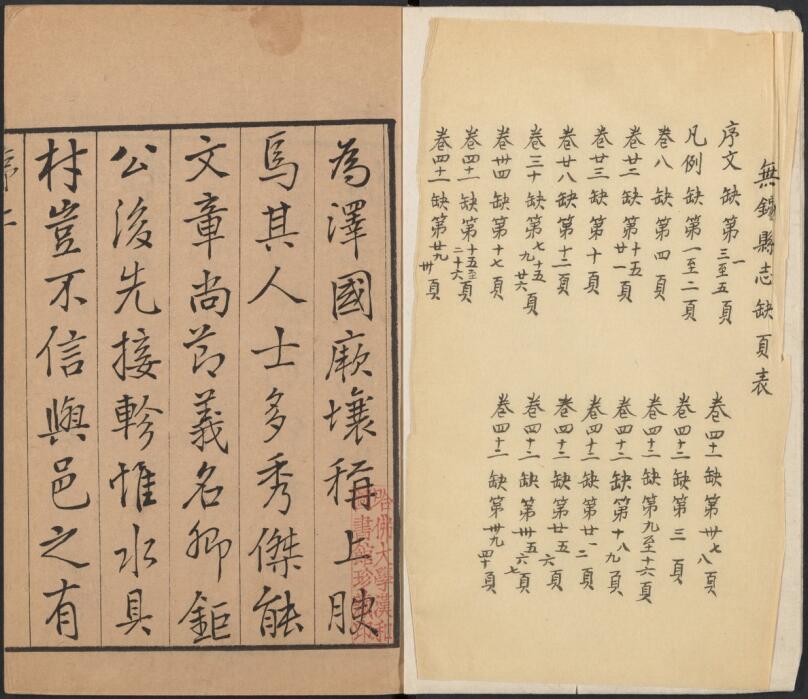 無錫縣志缺頁表
序文 缺第一 三至五頁
凡例 缺第一至二頁
卷八 缺第四頁
卷廿二 缺第十五 廿一頁
卷廿三 缺第十頁
卷廿八 缺第十二頁
卷三十 缺第七 九 十五 廿六頁
卷卅四 缺第十七頁
卷四十一 缺第十五至二十六頁
卷四十一 缺第廿九 卅頁
卷四十一 缺第卅七 八頁
卷四十二 缺第三頁
卷四十二 缺第九至十六頁
卷四十二 缺第十八 九頁
卷四十二 缺第廿一 二頁
卷四十二 缺第廿五 六頁
卷四十二 缺第卅五 六 七頁
卷四十二 缺第卅九 四十頁
為澤國厥壤稱上腴
焉其人士多秀傑能
文章尚節義名卿鉅
公後先接軫惟水具
材豈不信與邑之有
哈佛大學漢和
圖書館珍藏印